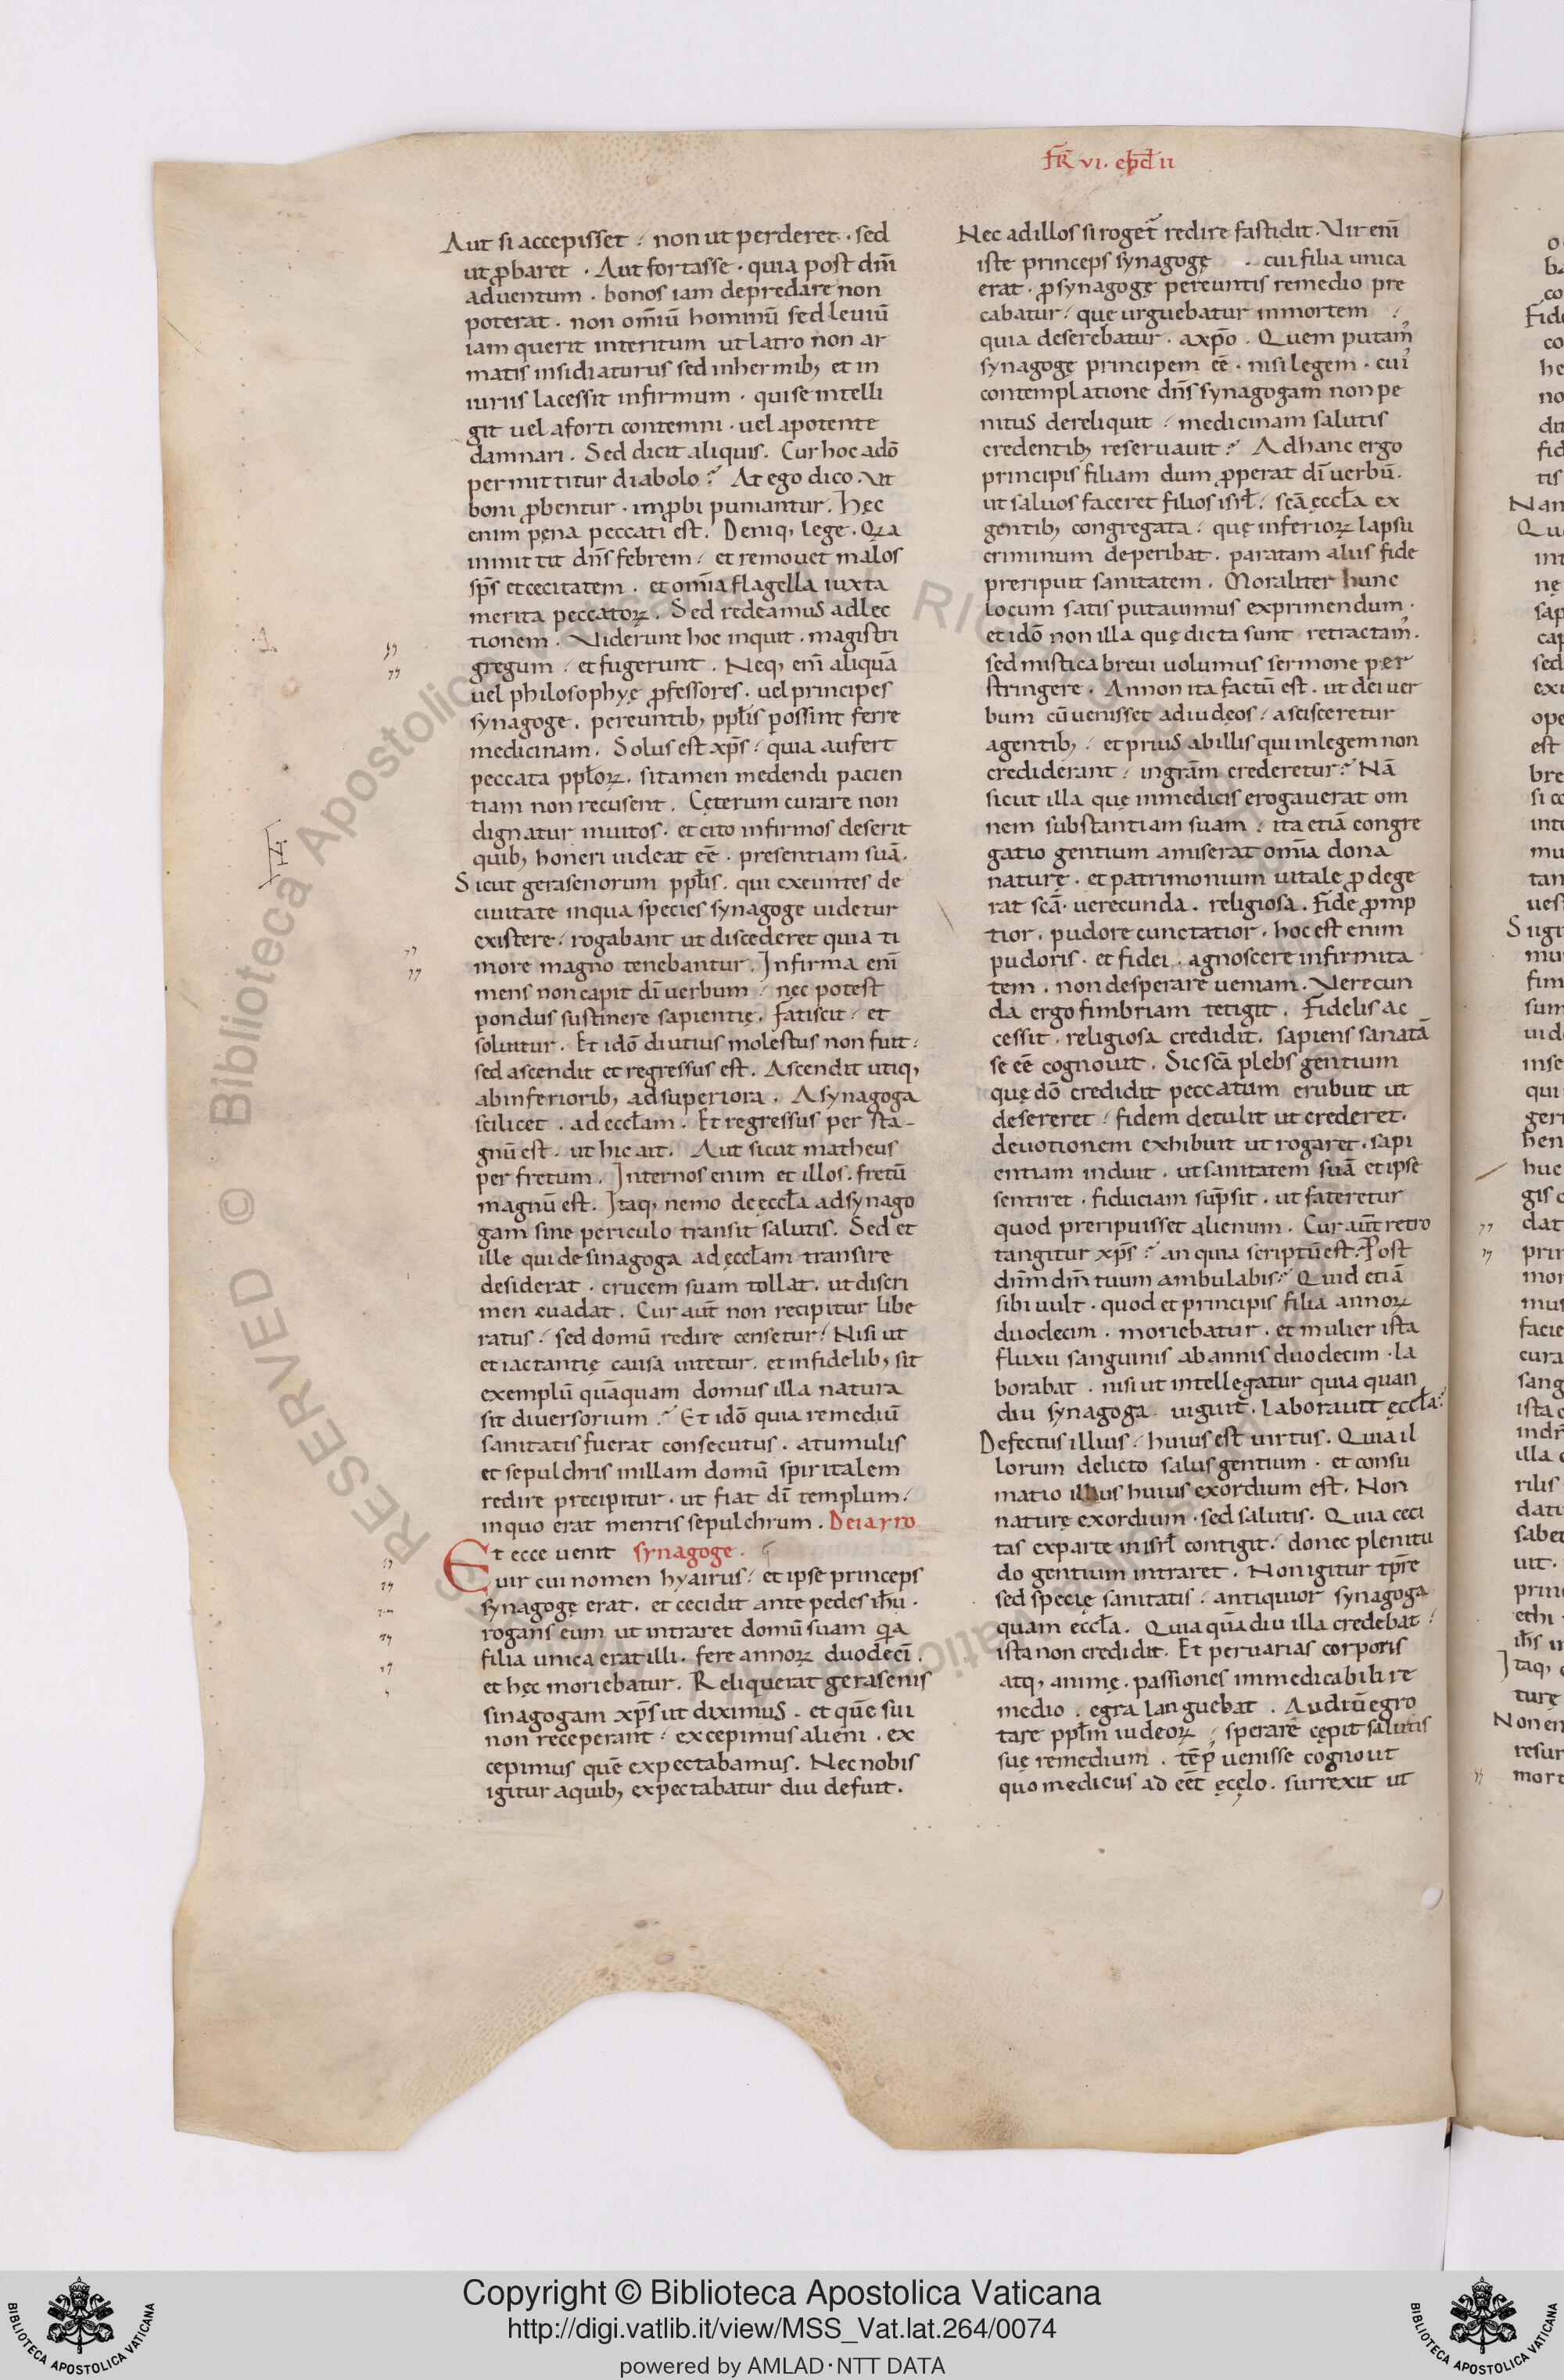 FR̄ VI. ebd̄ II
Aut si accepisset / non ut perderet · sed
ut ꝓbaret · Aut fortasse · quia post dn̄i
aduentum · bonos iam depredare non
poterat · non om̄iū hominū sed leuiū
iam querit interitum ut latro non ar
matis insidiaturus sed inhermib; et in
iuriis lacessit infirmum · qui se intelli
git uel a forti contemni · uel a potente
damnari . Sed dicit aliquis . Cur hoc a dō
permittitur diabolo ? At ego dico . Vt
boni ꝓbentur · imꝓbi puniantur . Hęc
enim pęna peccati est . Deniq; lege . Qꝛ a
inmittit dn̄s febrem / et remouet malos
sp̄s et cecitatem . et om̄ia flagella iuxta
merita peccatoꝝ . Sed redeamus ad lec
tionem . Viderunt hoc inquit . magistri
gregum / et fugerunt . Neq; eni̅ aliquā
uel philosophyę ꝓfessores . uel principes
synagogę . pereuntib; ppl̄is possint ferre
medicinam . Solus est xp̄s / quia aufert
peccata ppl̄oꝝ . si tamen medendi pacien
tiam non recusent . Cęterum curare non
dignatur inuitos · et cito infirmos deserit
quib; honeri uideat eē̄ . presentiam suā .
Sicut gerasenorum ppl̄is . qui exeuntes de
ciuitate in qua species synagoge uidetur
existere / rogabant ut discederet quia ti
more magno tenebantur . Infirma eni̅
mens non capit di̅ uerbum / nec potest
pondus sustinere sapientię . fatiscit / et
soluitur . Et idō diutius molestus non fuit /
sed ascendit et regressus est . Ascendit utiq;
ab inferiorib; ad superiora . A synagoga
scilicet . ad eccl̄am . Et regressus per sta-
gnū est . ut hic ait . Aut sicut matheus
per fretum . Inter nos enim et illos . fretū
magnū est . Itaq; nemo de eccl̄a ad synago
gam sine periculo transit salutis . Sed et
ille qui de sinagoga ad ęccl̄am transire
desiderat . crucem suam tollat . ut discri
men euadat . Cur aut̄ non recipitur libe
ratus / sed domū redire censetur ? Nisi ut
et iactantię causa uitetur . et infidelib; sit
exemplū quāquam domus illa natura
sit diuersorium ? Et idō quia remediū
sanitatis fuerat consecutus . a tumulis
et sepulchris in illam domū spiritalem
redire precipitur . ut fiat di̅ templum /
in quo erat mentis sepulchrum . De iayro
Et ecce uenit synagoge .
uir cui nomen hyairus / et ipse princeps
synagogę erat . et cecidit ante pedes ih̄u ·
rogans eum ut intraret domū suam qa
filia unica erat illi . fere annoꝝ duodeci̅ .
et hęc moriebatur . Reliquerat gerasenis
sinagogam xp̄s ut diximus . et quē sui
non receperant / excepimus alieni . ex
cepimus quē expectabamus . Nec nobis
igitur a quib; expectabatur diu defuit .
Nec ad illos si roget̄ redire fastidit . Vir eni̅
iste princeps synagogę . cui filia unica
erat . ꝓ synagogę pereuntis remedio pre
cabatur / quę urguebatur in mortem /
quia deserebatur . a xp̄o . Quem putam̛
synagogę principem eē̄ . nisi legem . cui̛
contemplatione dn̄s synagogam non pe
nitus dereliquit / medicinam salutis
credentib; reseruauit ? Ad hanc ergo
principis filiam dum ꝓperat di̅ uerbū .
ut saluos faceret filios isrl̄ / sc̄a ęccl̄a ex
gentib; congregata / quę inferioꝝ lapsu
criminum deperibat . paratam aliis fide
preripuit sanitatem . Moraliter hunc
locum satis putauimus exprimendum ·
et idō non illa quę dicta sunt retractam̛ .
sed mistica breui uolumus sermone per
stringere . An non ita factū est . ut dei uer
bum cū uenisset ad iudęos / ascisceretur
a gentib; / et prius ab illis qui in legem non
crediderant / in grām crederetur ? Nā
sicut illa quę in medicis erogauerat om
nem substantiam suam / ita etiā congre
gatio gentium amiserat om̄ia dona
naturę . et patrimonium uitale ꝓdege
rat sc̄a . uerecunda . religiosa . fide ꝓmp
tior . pudore cunctatior . hoc est enim
pudoris . et fidei . agnoscere infirmita
tem . non desperare ueniam . Verecun
da ergo fimbriam tetigit . Fidelis ac
cessit . religiosa credidit . sapiens sanatā
se eē̄ cognouit . Sic sc̄a plebs gentium
quę dō credidit peccatum erubuit ut
desereret / fidem detulit ut crederet .
deuotionem exhibuit ut rogaret . sapi
entiam induit . ut sanitatem suā et ipse
sentiret . fiduciam sūpsit . ut fateretur
quod preripuisset alienum . Cur aut̄ retro
tangitur xp̄s ? an quia scriptū est ? Post
dn̄m dm̄ tuum ambulabis ? Quid etiā
sibi uult . quod et principis filia annoꝝ
duodecim . moriebatur . et mulier ista
fluxu sanguinis ab annis duodecim . la
borabat . nisi ut intellegatur quia quan
diu synagoga uiguit . laborauit ęccl̄a ?
Defectus illius / huius est uirtus . Quia il
lorum delicto salus gentium . et consu
matio illius huius exordium est . Non
naturę exordium . sed salutis . Quia ceci
tas ex parte in isrl̄ contigit / donec plenitu
do gentium intraret . Non igitur tp̄re
sed specię sanitatis / antiquior synagoga
quam eccl̄a . Quia quā diu illa credebat /
ista non credidit . Et per uarias corporis
atq; animę . passiones inmedicabili re
medio . egra languebat . Audiū egro
tare ppl̄m iudeoꝝ ; sperare cępit salutis
suę remedium . tēp̛ uenisse cognouit
quo medicus adeēt ęcęlo . surrexit ut
Copyright © Biblioteca Apostolica Vaticana
http://digi.vatlib.it/view/MSS_Vat.lat.264/0074
powered by AMLAD·NTT DATA